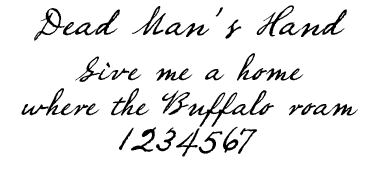 Dead Man's Hand
Give me a home
where the Buffalo roam
1234567